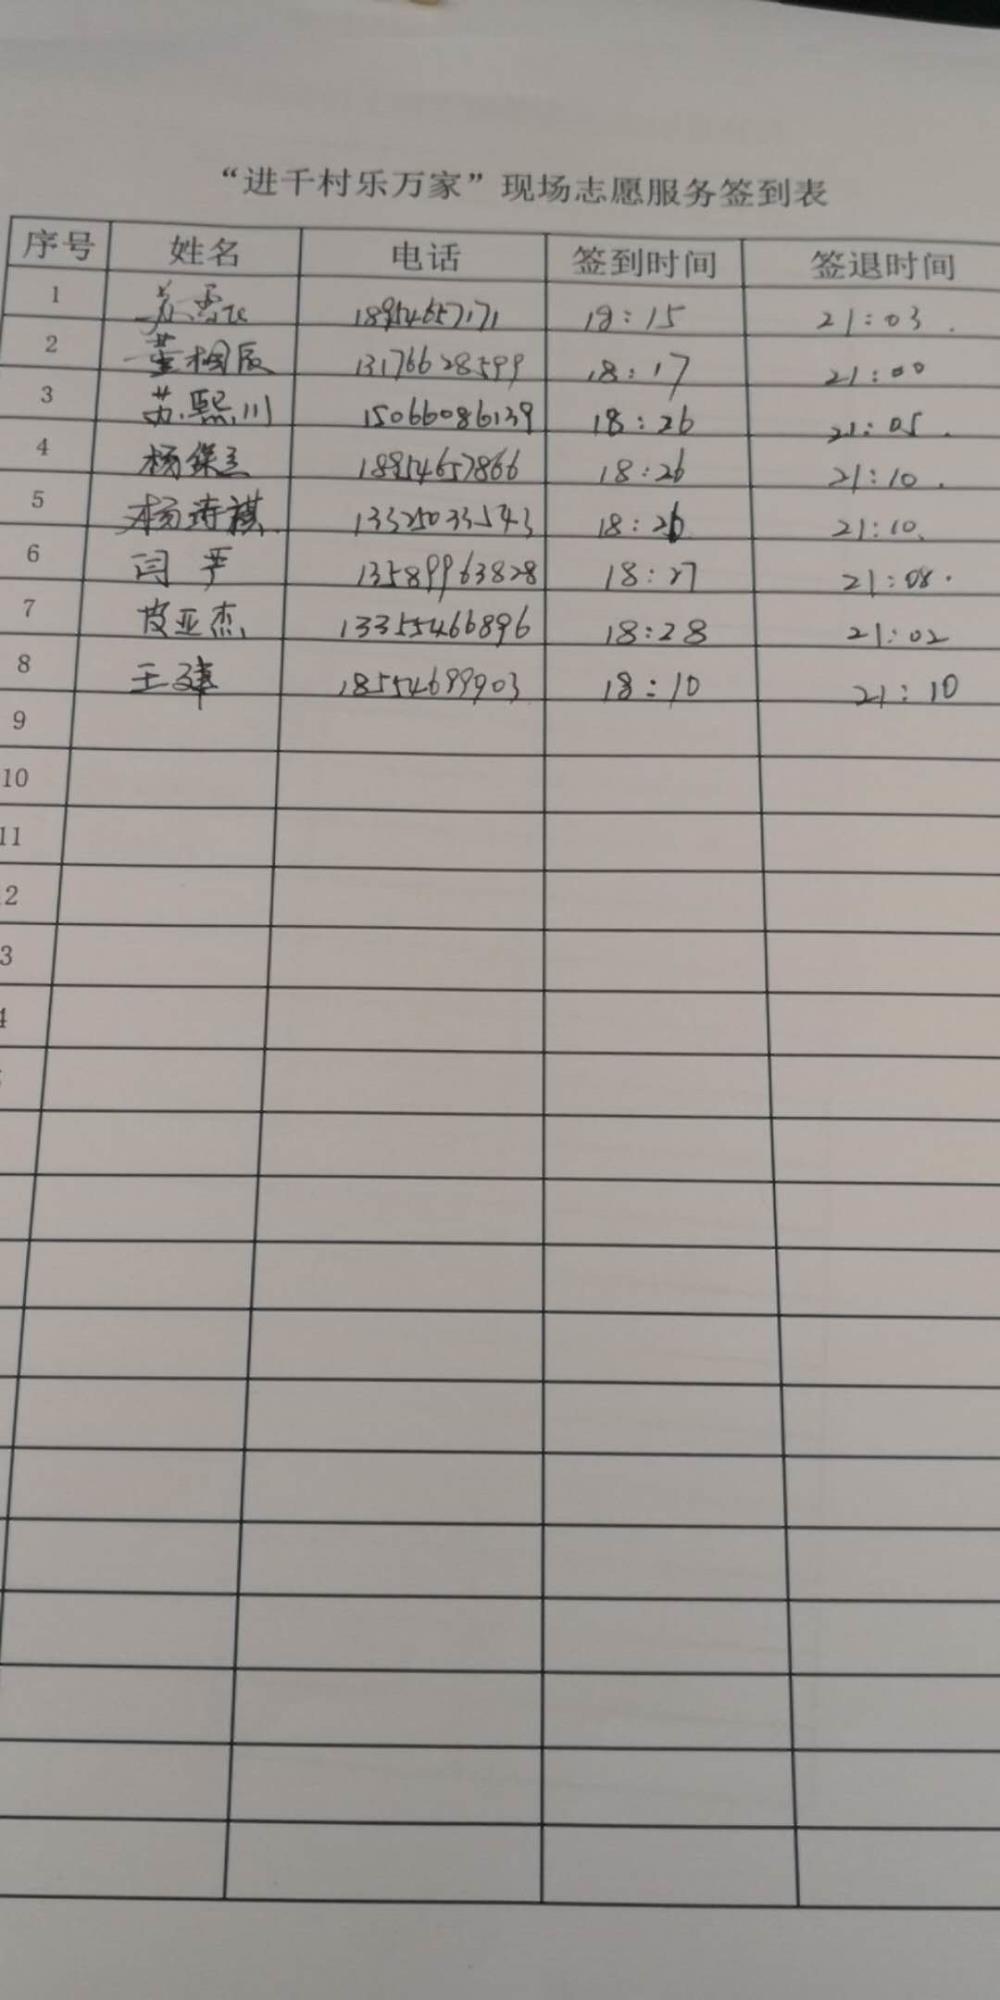 “进千村乐万家”现场志愿服务签到表
序号 姓名 电话 签到时间 签退时间
1 18954657171 18:15 21:03.
2 董相辰 13176628599 18:17 21:00
3 苏熙川 15066086139 18:26 21:05.
4 杨 18954657866 18:26 21:10.
5 杨诗祺 13325033543 18:26 21:10.
6 闫严 13589963828 18:27 21:08.
7 皮亚杰 13355466896 18:28 21:02
8 王建 18554699903 18:10 21:10
9
10
11
2
3
4